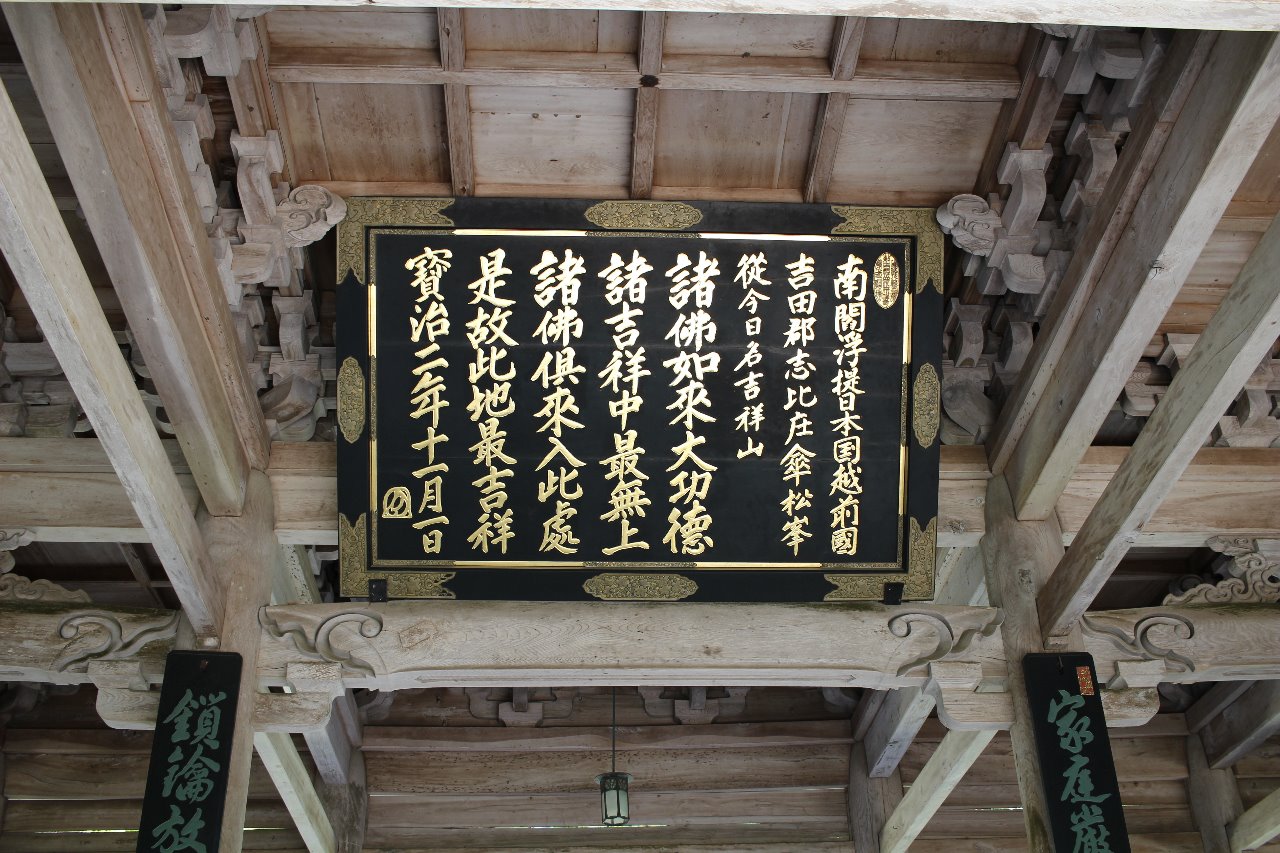 南閻浮提日本国越前國
吉田郡志比庄傘松峯
從今日名吉祥山
諸佛如來大功德
諸吉祥中最無上
諸佛俱來入此處
是故此地最吉祥
寶治二年十一月一日
家庭嚴
鎖鑰放